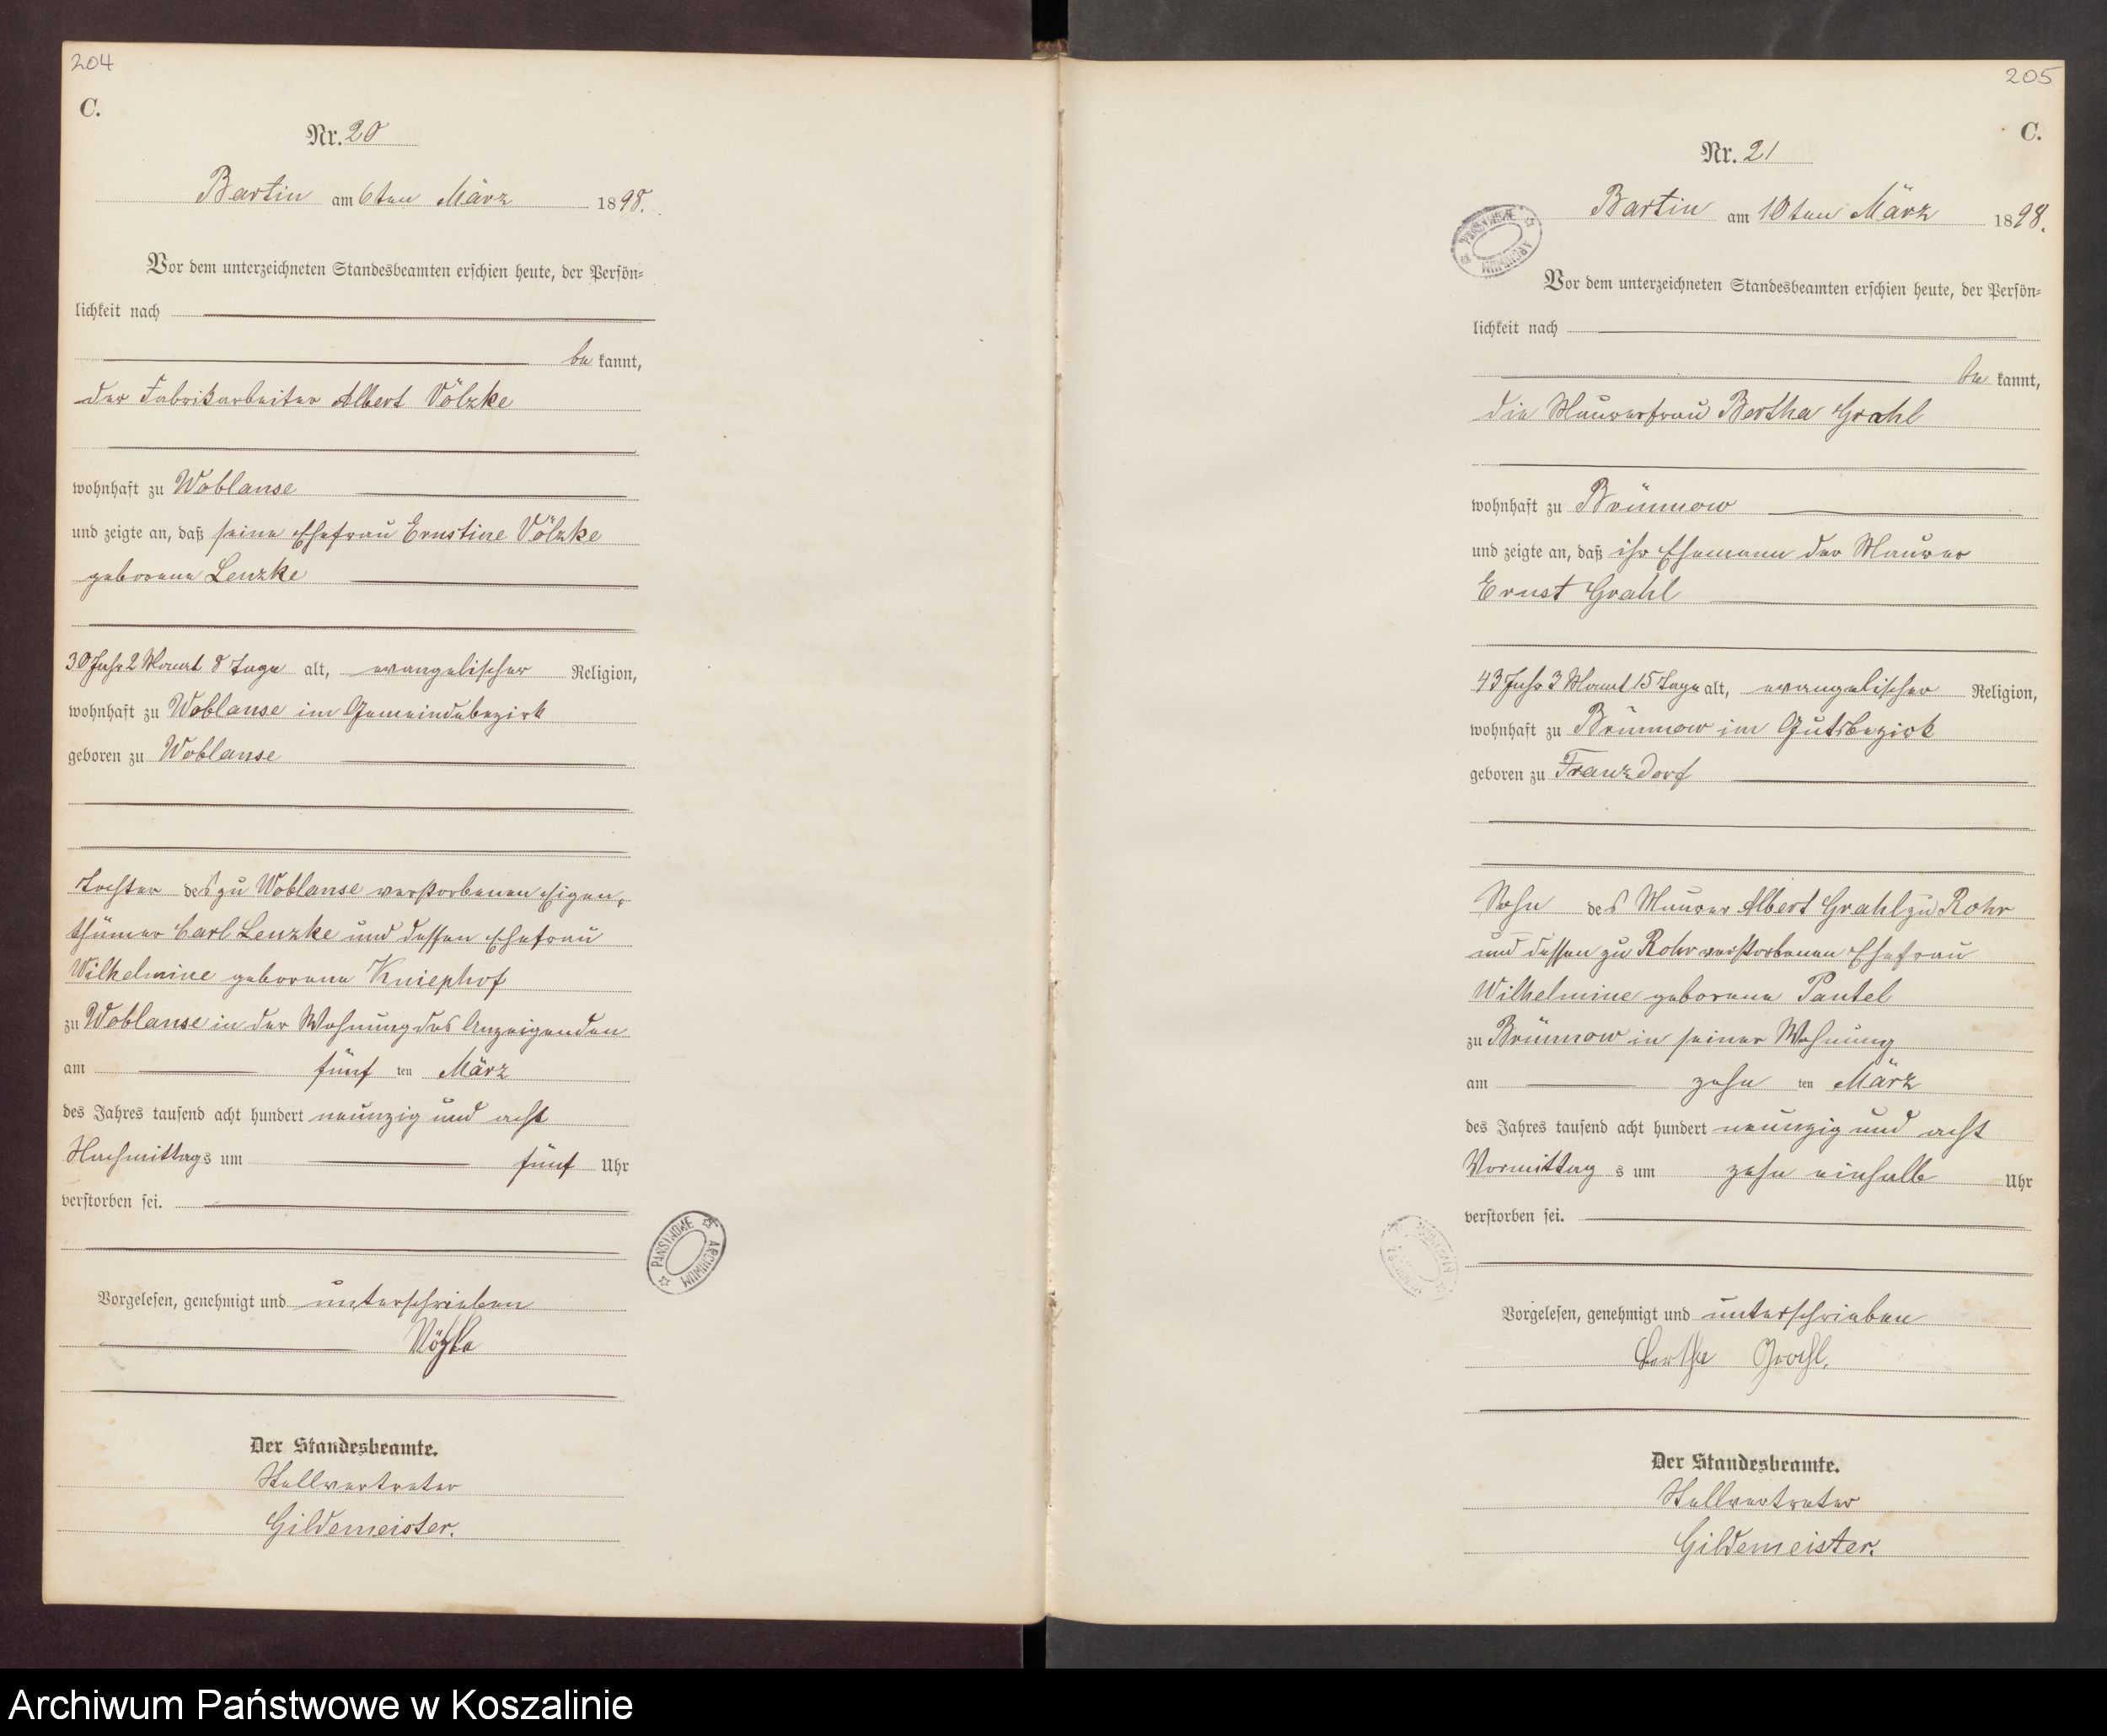 204
C.
Nr. 20
Bartin am 6ten März 1898.
Vor dem unterzeichneten Standesbeamten erschien heute, der Persön=
lichkeit nach
be kannt,
der Fabrikarbeiter Albert Völzke
wohnhaft zu Woblanse
und zeigte an, daß seine Ehefrau Ernstine Völzke
geborene Lenzke
30 Jahr 2 Monat 8 Tage alt, evangelischer Religion,
wohnhaft zu Woblanse im Gemeindebezirk
geboren zu Woblanse
Tochter des zu Woblanse verstorbenen Eigen=
thümer Carl Lenzke und dessen Ehefrau
Wilhelmine geborene Kniephof
zu Woblanse in der Wohnung des Anzeigenden
am fünf ten März
des Jahres tausend acht hundert neunzig und acht
Nachmittags um fünf Uhr
verstorben sei.
Vorgelesen, genehmigt und unterschrieben
Völzke
Der Standesbeamte.
Stellvertreter
Gildemeister.
PAŃSTWOWE ARCHIWUM
205
C.
Nr. 21
Bartin am 10ten März 1898.
PAŃSTWOWE ARCHIWUM
Vor dem unterzeichneten Standesbeamten erschien heute, der Persön=
lichkeit nach
be kannt,
die Maurerfrau Bertha Grahl
wohnhaft zu Brünnow
und zeigte an, daß ihr Ehemann der Maurer
Ernst Grahl
43 Jahr 3 Monat 15 Tage alt, evangelischer Religion,
wohnhaft zu Brünnow im Gutsbezirk
geboren zu Franzdorf
Sohn des Maurer Albert Grahl zu Rohr
und dessen zu Rohr verstorbenen Ehefrau
Wilhelmine geborene Pantel
zu Brünnow in seiner Wohnung
am zehn ten März
des Jahres tausend acht hundert neunzig und acht
Vormittag s um zehn einhalb Uhr
verstorben sei.
Vorgelesen, genehmigt und unterschrieben
Bertha Grahl.
Der Standesbeamte.
Stellvertreter
Gildemeister.
Archiwum Państwowe w Koszalinie